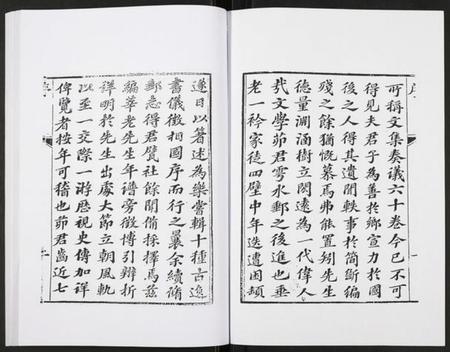 序
可稱文集奏議六十卷今已不可
得見夫君子為善於鄉宣力於國
後之人得其遺聞軼事於簡斷編
殘之餘猶慨慕焉弗能置矧先生
德量淵涵樹立閎遠為一代偉人
㢤文學茆君雩水鄭之後進也垂
老一衿家徒四壁中年迭遭困頓
遂日以著述為樂嘗輯十種古逸
書儀徵相國序而行之曩余續脩
郵志得君贊社餘聞備採擇焉茲
編莘老先生年譜旁徵博引辨析
詳明於先生出處大節立朝風軌
以至一交際一游歷視史傳加詳
俾覽者按年可稽也茆君齒近七